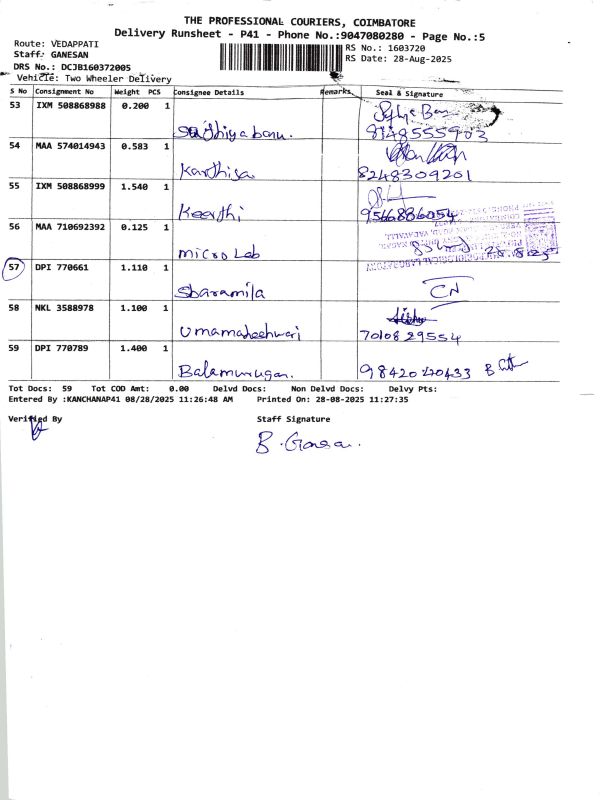 THE PROFESSIONAL COURIERS, COIMBATORE
Delivery Runsheet - P41 - Phone No.:9047080280 - Page No.:5
Route: VEDAPPATI
Staff: GANESAN
RS No.: 1603720
DRS No.: DCJB160372005
RS Date: 28-Aug-2025
Vehicle: Two Wheeler Delivery
S No Consignment No Weight PCS Consignee Details Remarks Seal & Signature
53 IXM 508868988 0.200 1
Sathiyabanu. 8148555903
54 MAA 574014943 0.583 1
Karthiga 8248309201
55 IXM 508868999 1.540 1
Keerthi 9566886054
56 MAA 710692392 0.125 1
micro Lab 28.8.25
57 DPI 770661 1.110 1
Sharamila CN
58 NKL 3588978 1.100 1
Umamaheshwari 7010829554
59 DPI 770789 1.400 1
Balamurugan. 9842040433
Tot Docs: 59 Tot COD Amt: 0.00 Delvd Docs: Non Delvd Docs: Delvy Pts:
Entered By :KANCHANAP41 08/28/2025 11:26:48 AM Printed On: 28-08-2025 11:27:35
Verified By Staff Signature